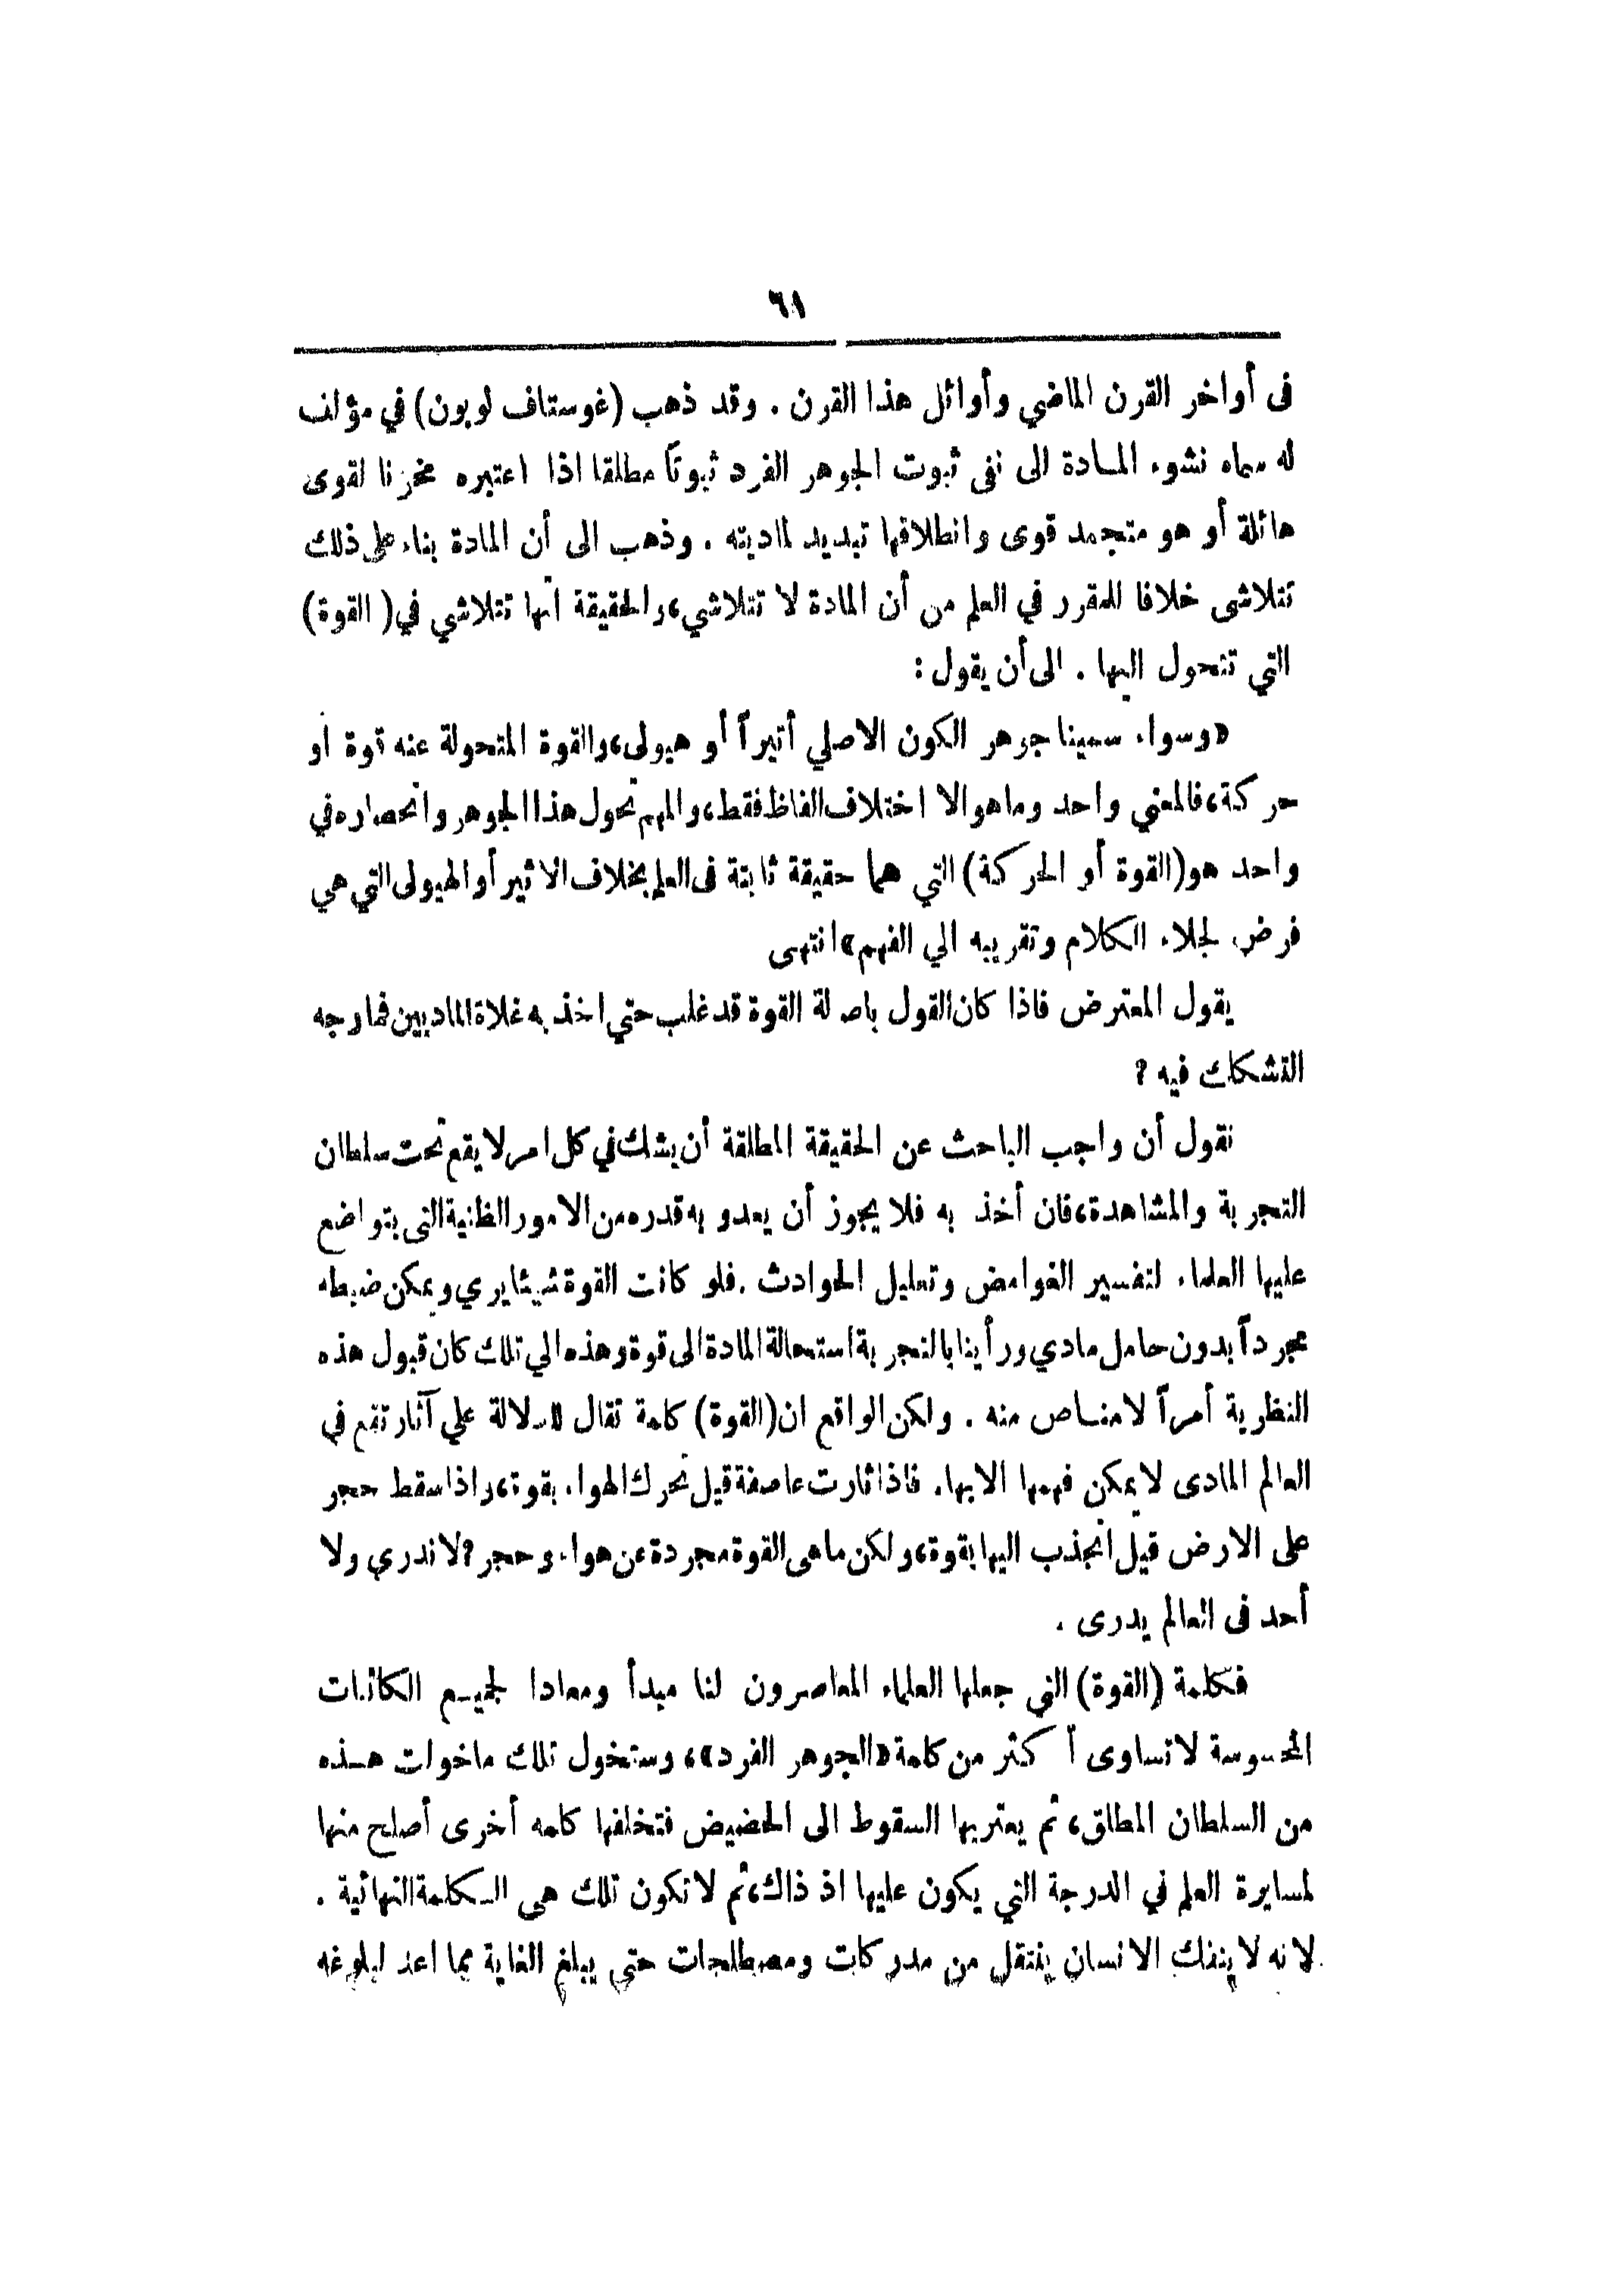 ٦١
فى أواخر القرن الماضي وأوائل هذا القرن . وقد ذهب (غوستاف لوبون) في مؤلف
له سماه نشوء المادة الى نفى ثبوت الجوهر الفرد ثبوتاً مطلقا اذا اعتبره مخزنا لقوى
هائلة أو هو متجمد قوى وانطلاقها تبديد لماديته . وذهب الى أن المادة بناء على ذلك
تتلاشى خلافا للمقرر في العلم من أن المادة لا تتلاشي، والحقيقة انها تتلاشي في ( القوة )
التي تتحول اليها . الى أن يقول :
«وسواء سمينا جوهر الكون الاصلي أثيراً أو هيولى، والقوة المتحولة عنه قوة او
حركة، فالمعني واحد وما هو الا اختلاف الفاظ فقط، والمهم تحول هذا الجوهر وانحصاره في
واحد هو (القوة أو الحركة) التي هما حقيقة ثابتة فى العلم بخلاف الاثير أو الهيولى التي هي
فرض لجلاء الكلام وتقريبه الي الفهم» انتهى
يقول المعترض فاذا كان القول باصالة القوة قد غلب حتي اخذ به غلاة الماديين فما وجه
التشكك فيه ؟
نقول أن واجب الباحث عن الحقيقة المطلقة أن يشك في كل امر لا يقع تحت سلطان
التجربة والمشاهدة، فان أخذ به فلا يجوز أن يعدو به قدره من الامور الظنية التى يتواضع
عليها العلماء لتفسير الغوامض وتعليل الحوادث . فلو كانت القوة شيئا يري ويمكن ضبطه
مجرداً بدون حامل مادي ورأينا بالتجربة استحالة المادة الى قوة وهذه الي تلك كان قبول هذه
النظرية أمراً لا مناص منه . ولكن الواقع ان (القوة) كلمة تقال للدلالة علي آثار تقع في
العالم المادى لا يمكن فهمها الا بها . فاذا ثارت عاصفة قيل تحرك الهواء بقوة، واذا سقط حجر
على الارض قيل انجذب اليها بقوة، ولكن ما هى القوة مجردة عن هواء وحجر ؟ لا ندري ولا
أحد فى العالم يدرى .
فكلمة (القوة) التي جعلها العلماء المعاصرون لنا مبدأ ومعادا لجميع الكائنات
المحسوسة لا تساوى أكثر من كلمة «الجوهر الفرد»، وستخول تلك ما خولت هذه
من السلطان المطلق، ثم يعتريها السقوط الى الحضيض فتخلفها كلمه أخرى أصلح منها
لمسايرة العلم في الدرجة التي يكون عليها اذ ذاك، ثم لا تكون تلك هي الكلمة النهائية .
لانه لا ينفك الانسان ينتقل من مدركات ومصطلحات حتي يبلغ الغاية مما اعد لبلوغه